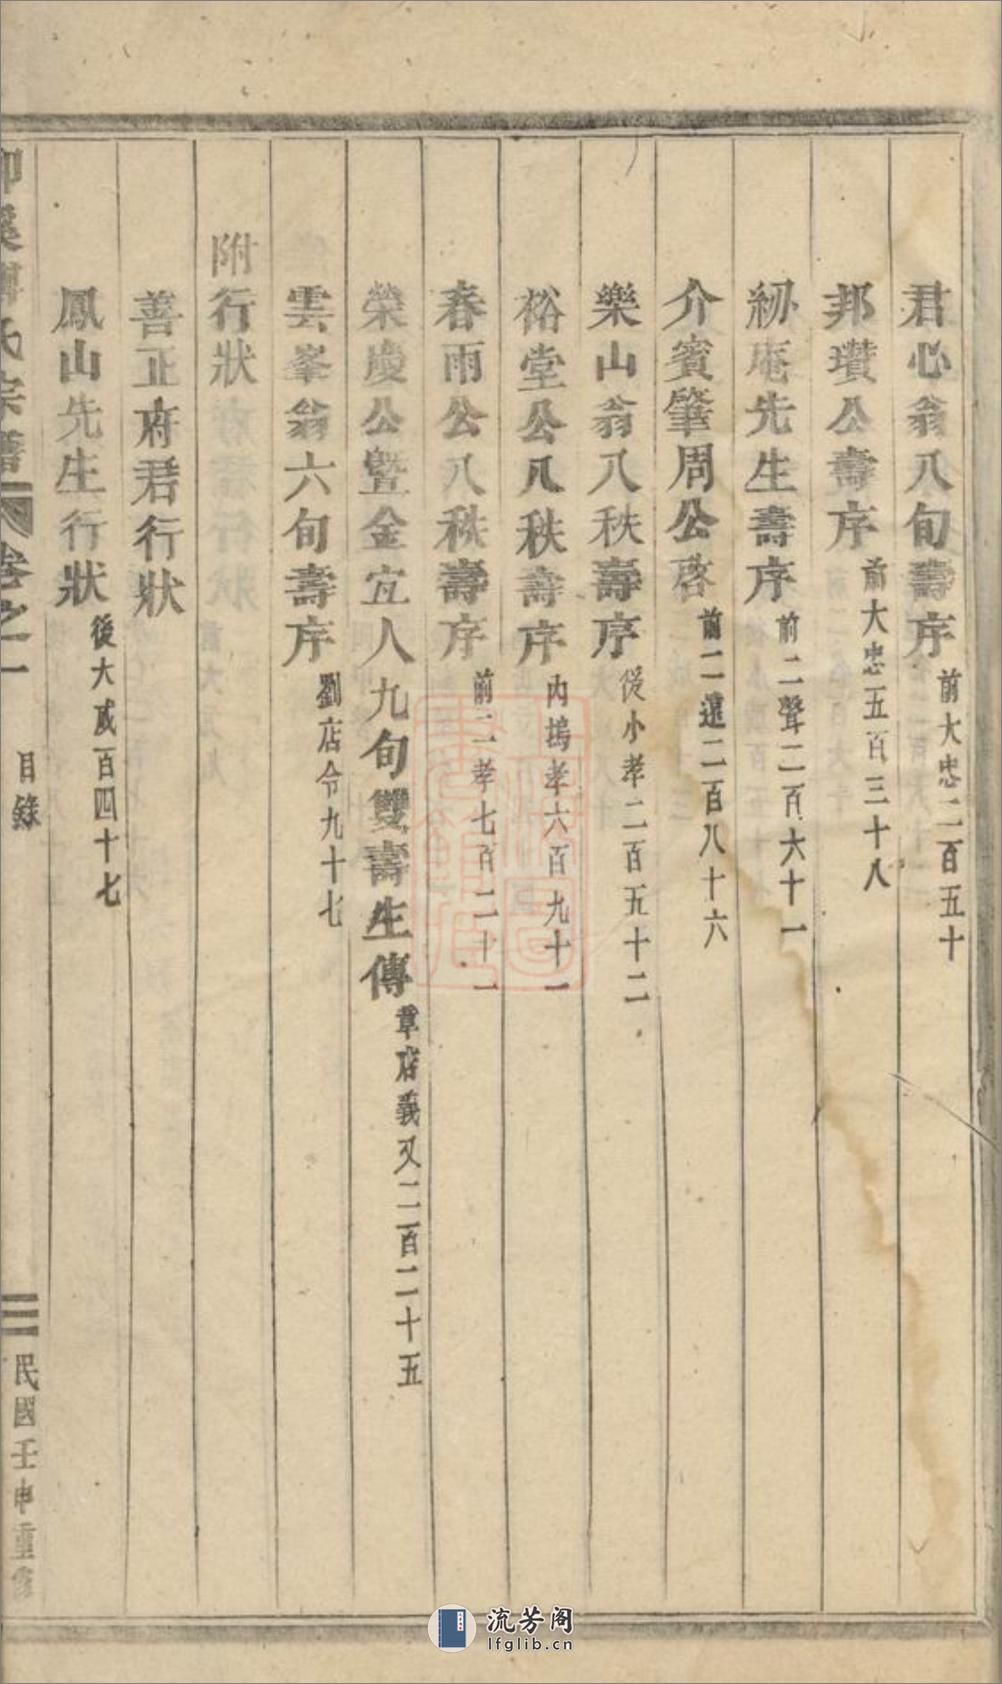 君心翁八旬壽序 前大忠二百五十
邦瓚公壽序 前大忠五百三十八
紉庵先生壽序 前二聲二百六十一
介賓肇周公啓 前二遠二百八十六
樂山翁八秩壽序 後小孝二百五十二
裕堂公八秩壽序 內塢孝六百九十一
春雨公八秩壽序 前二孝七百二十一
榮慶公暨金宜人九旬雙壽生傳 章店義又二百二十五
雲峯翁六旬壽序 劉店令九十七
附行狀
善正府君行狀
鳳山先生行狀 後大咸百四十七
溪傅氏宗譜 卷之一 目錄 三 民國壬申重修
流芳阁
lfglib.cn